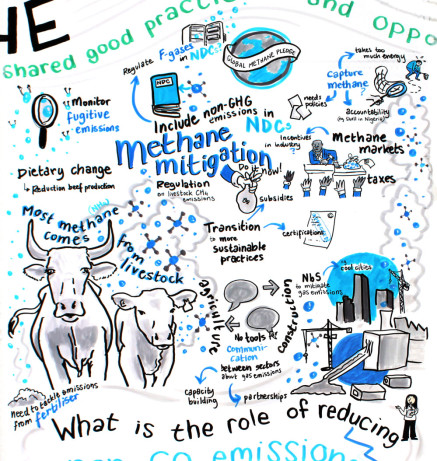 HE
Shared good practic
and oppo
Regulate F-gases
in NDCs
NDC
GLOBAL METHANE PLEDGE
takes too
much energy
Capture
methane
needs
policies
accountability
Monitor
fugitive
emissions
Include non-GHG
emissions in
NDCs
Methane
mitigation
Do it now!
Incentives
in industry
Methane
markets
taxes
Dietary change
↳ Reduction beef production
Regulation
on livestock CH4
emissions
subsidies
Most methane
comes
from
livestock
Transition
to more
sustainable
practices
certification
agriculture
construction
NbS
to mitigate
gas emissions
cool cities
No tools
communi-
cation
between sectors
about gas emissions
capacity
building
partnerships
need to tackle emissions
from fertiliser
What is the role of reducing
non CO emission